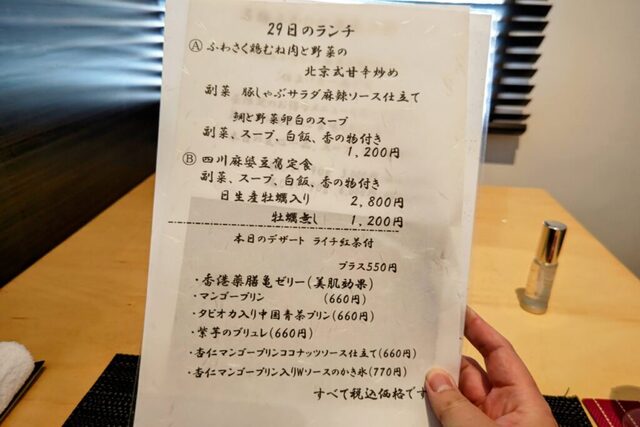 29日のランチ
Ⓐ ふわさく鶏むね肉と野菜の
北京式甘辛炒め
副菜 豚しゃぶサラダ麻辣ソース仕立て
鯛と野菜卵白のスープ
副菜、スープ、白飯、香の物付き
1,200円
Ⓑ 四川麻婆豆腐定食
副菜、スープ、白飯、香の物付き
日生産牡蠣入り 2,800円
牡蠣無し 1,200円
本日のデザート ライチ紅茶付
プラス550円
・香港薬膳亀ゼリー(美肌効果)
・マンゴープリン (660円)
・タピオカ入り中国青茶プリン(660円)
・紫芋のブリュレ(660円)
・杏仁マンゴープリンココナッツソース仕立て(660円)
・杏仁マンゴープリン入りWソースのかき氷(770円)
すべて税込価格です